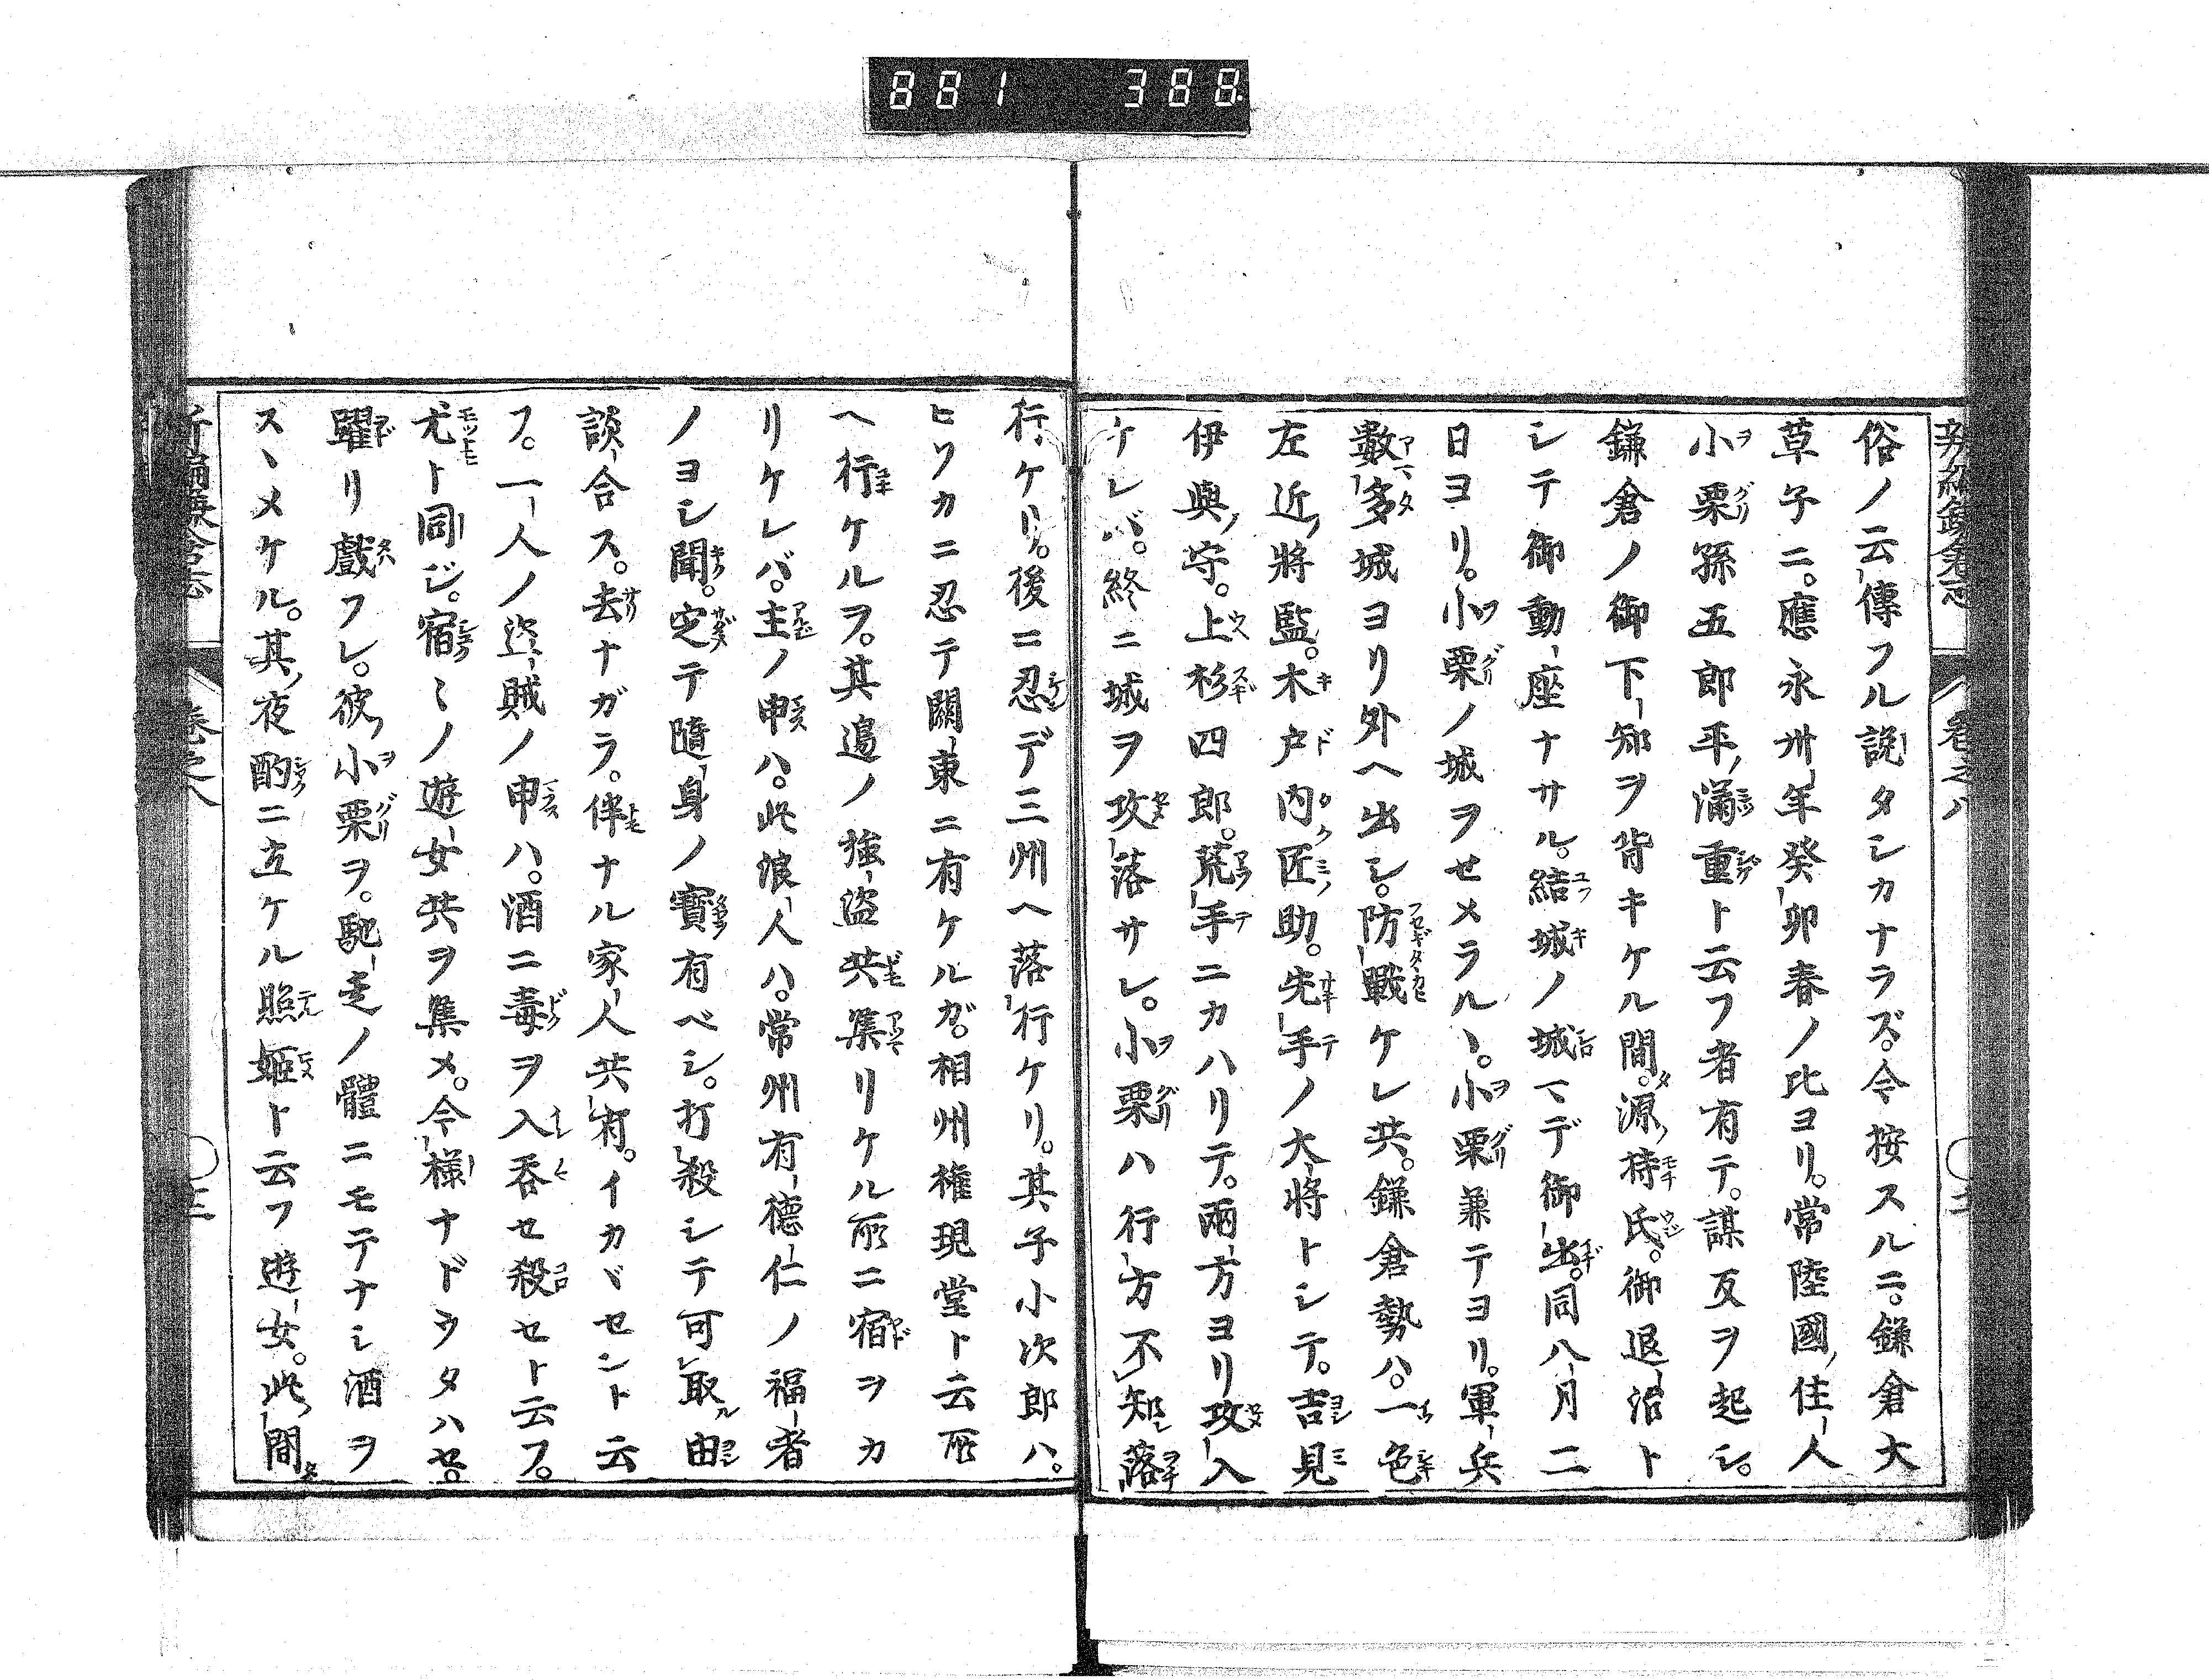 881 388
新編鎌倉志 卷之八
俗ノ云傳フル説タシカナラズ。今按スルニ。鎌倉大
草子ニ。應永卅年癸卯春ノ比ヨリ。常陸國住人
小栗孫五郎平滿重ト云フ者有テ。謀反ヲ起シ。
鎌倉ノ御下知ヲ背キケル間。源持氏。御退治ト
シテ御動座ナサル。結城ノ城マデ御出。同八月二
日ヨリ。小栗ノ城ヲせメラル丶。小栗兼テヨリ。軍兵
數多城ヨリ外ヘ出シ。防戰ケレ共。鎌倉勢ハ。一色
左近將監。木戸内匠助。先手ノ大將トシテ。吉見
伊與守。上杉四郎。荒手ニカハリテ。兩方ヨリ攻入
ケレバ。終ニ城ヲ攻落サレ。小栗ハ行方不知落
行ケリ。後ニ忍デ三州ヘ落行ケリ。其子小次郎ハ。
ヒソカニ忍テ關東ニ有ケルガ。相州權現堂ト云所
ヘ行ケルヲ。其邉ノ強盗共集リケル所ニ宿ヲカ
リケレバ。主ノ申ハ。此浪人ハ。常州有德仁ノ福者
ノヨシ聞。定テ隨身ノ寶有ベシ。打殺シテ可取由
談合ス。去ナガラ。伴ナル家人共有。イカヾセント云
フ。一人ノ盗賊ノ申ハ。酒ニ毒ヲ入呑セ殺セト云フ。
尤ト同ジ。宿〻ノ遊女共ヲ集メ。今樣ナドウタハセ。
躍リ戲フレ。彼小栗ヲ。馳走ノ體ニモテナシ酒ヲ
ス丶メケル。其夜酌ニ立ケル照姬ト云フ遊女。此間
新編鎌倉志 卷之八